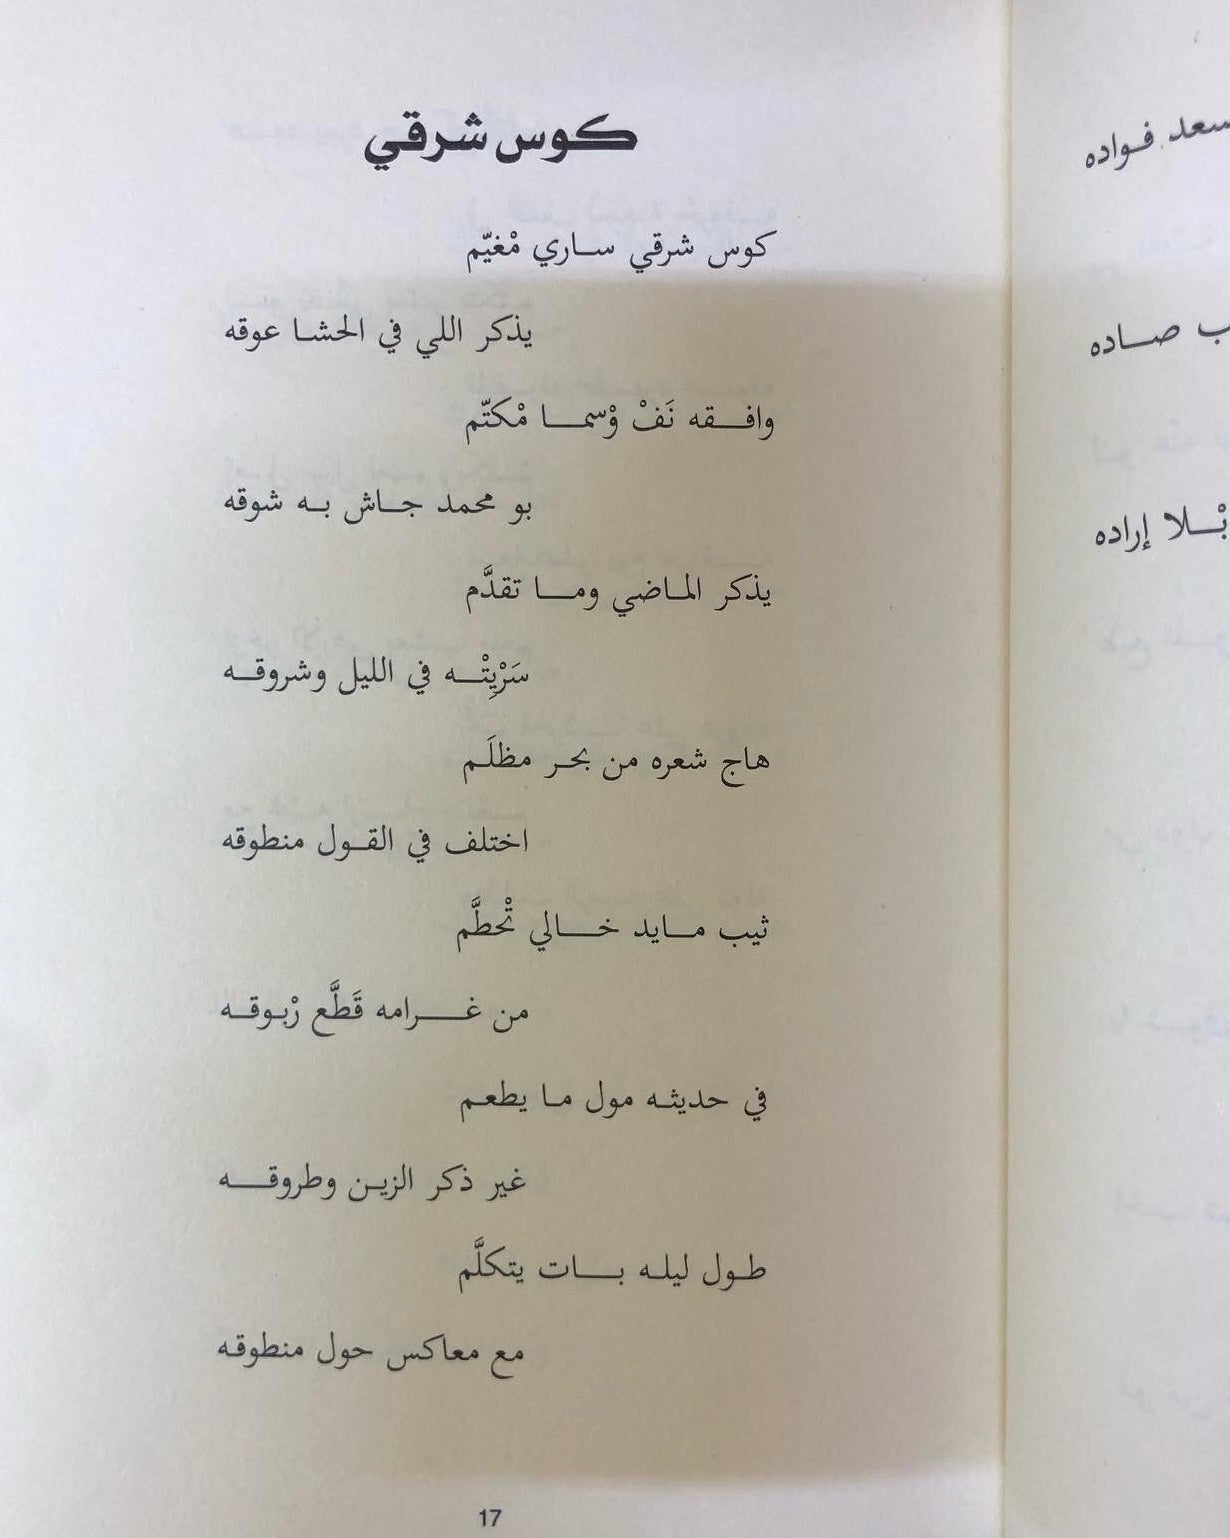 كوس شرقي
كوس شرقي ساري مْغيّم
يذكر اللي في الحشا عوقه
وافقه نَفْ وْسما مْكتّم
بو محمد جاش به شوقه
يذكر الماضي وما تقدَّم
سَرْيِتْه في الليل وشروقه
هاج شعره من بحر مظلَم
اختلف في القول منطوقه
ثيب مايد خالي تْحطَّم
من غرامه قَطَّع رْبوقه
في حديثه مول ما يطعم
غير ذكر الزين وطروقه
طول ليله بات يتكلَّم
مع معاكس حول منطوقه
17
سعد فواده
ب صاده
بْلا إراده